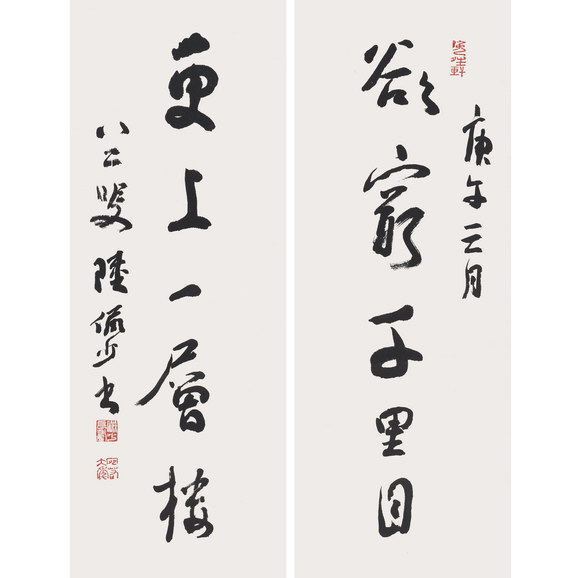 庚午三月
欲窮千里目
更上一層樓
八二叟陸儼少書